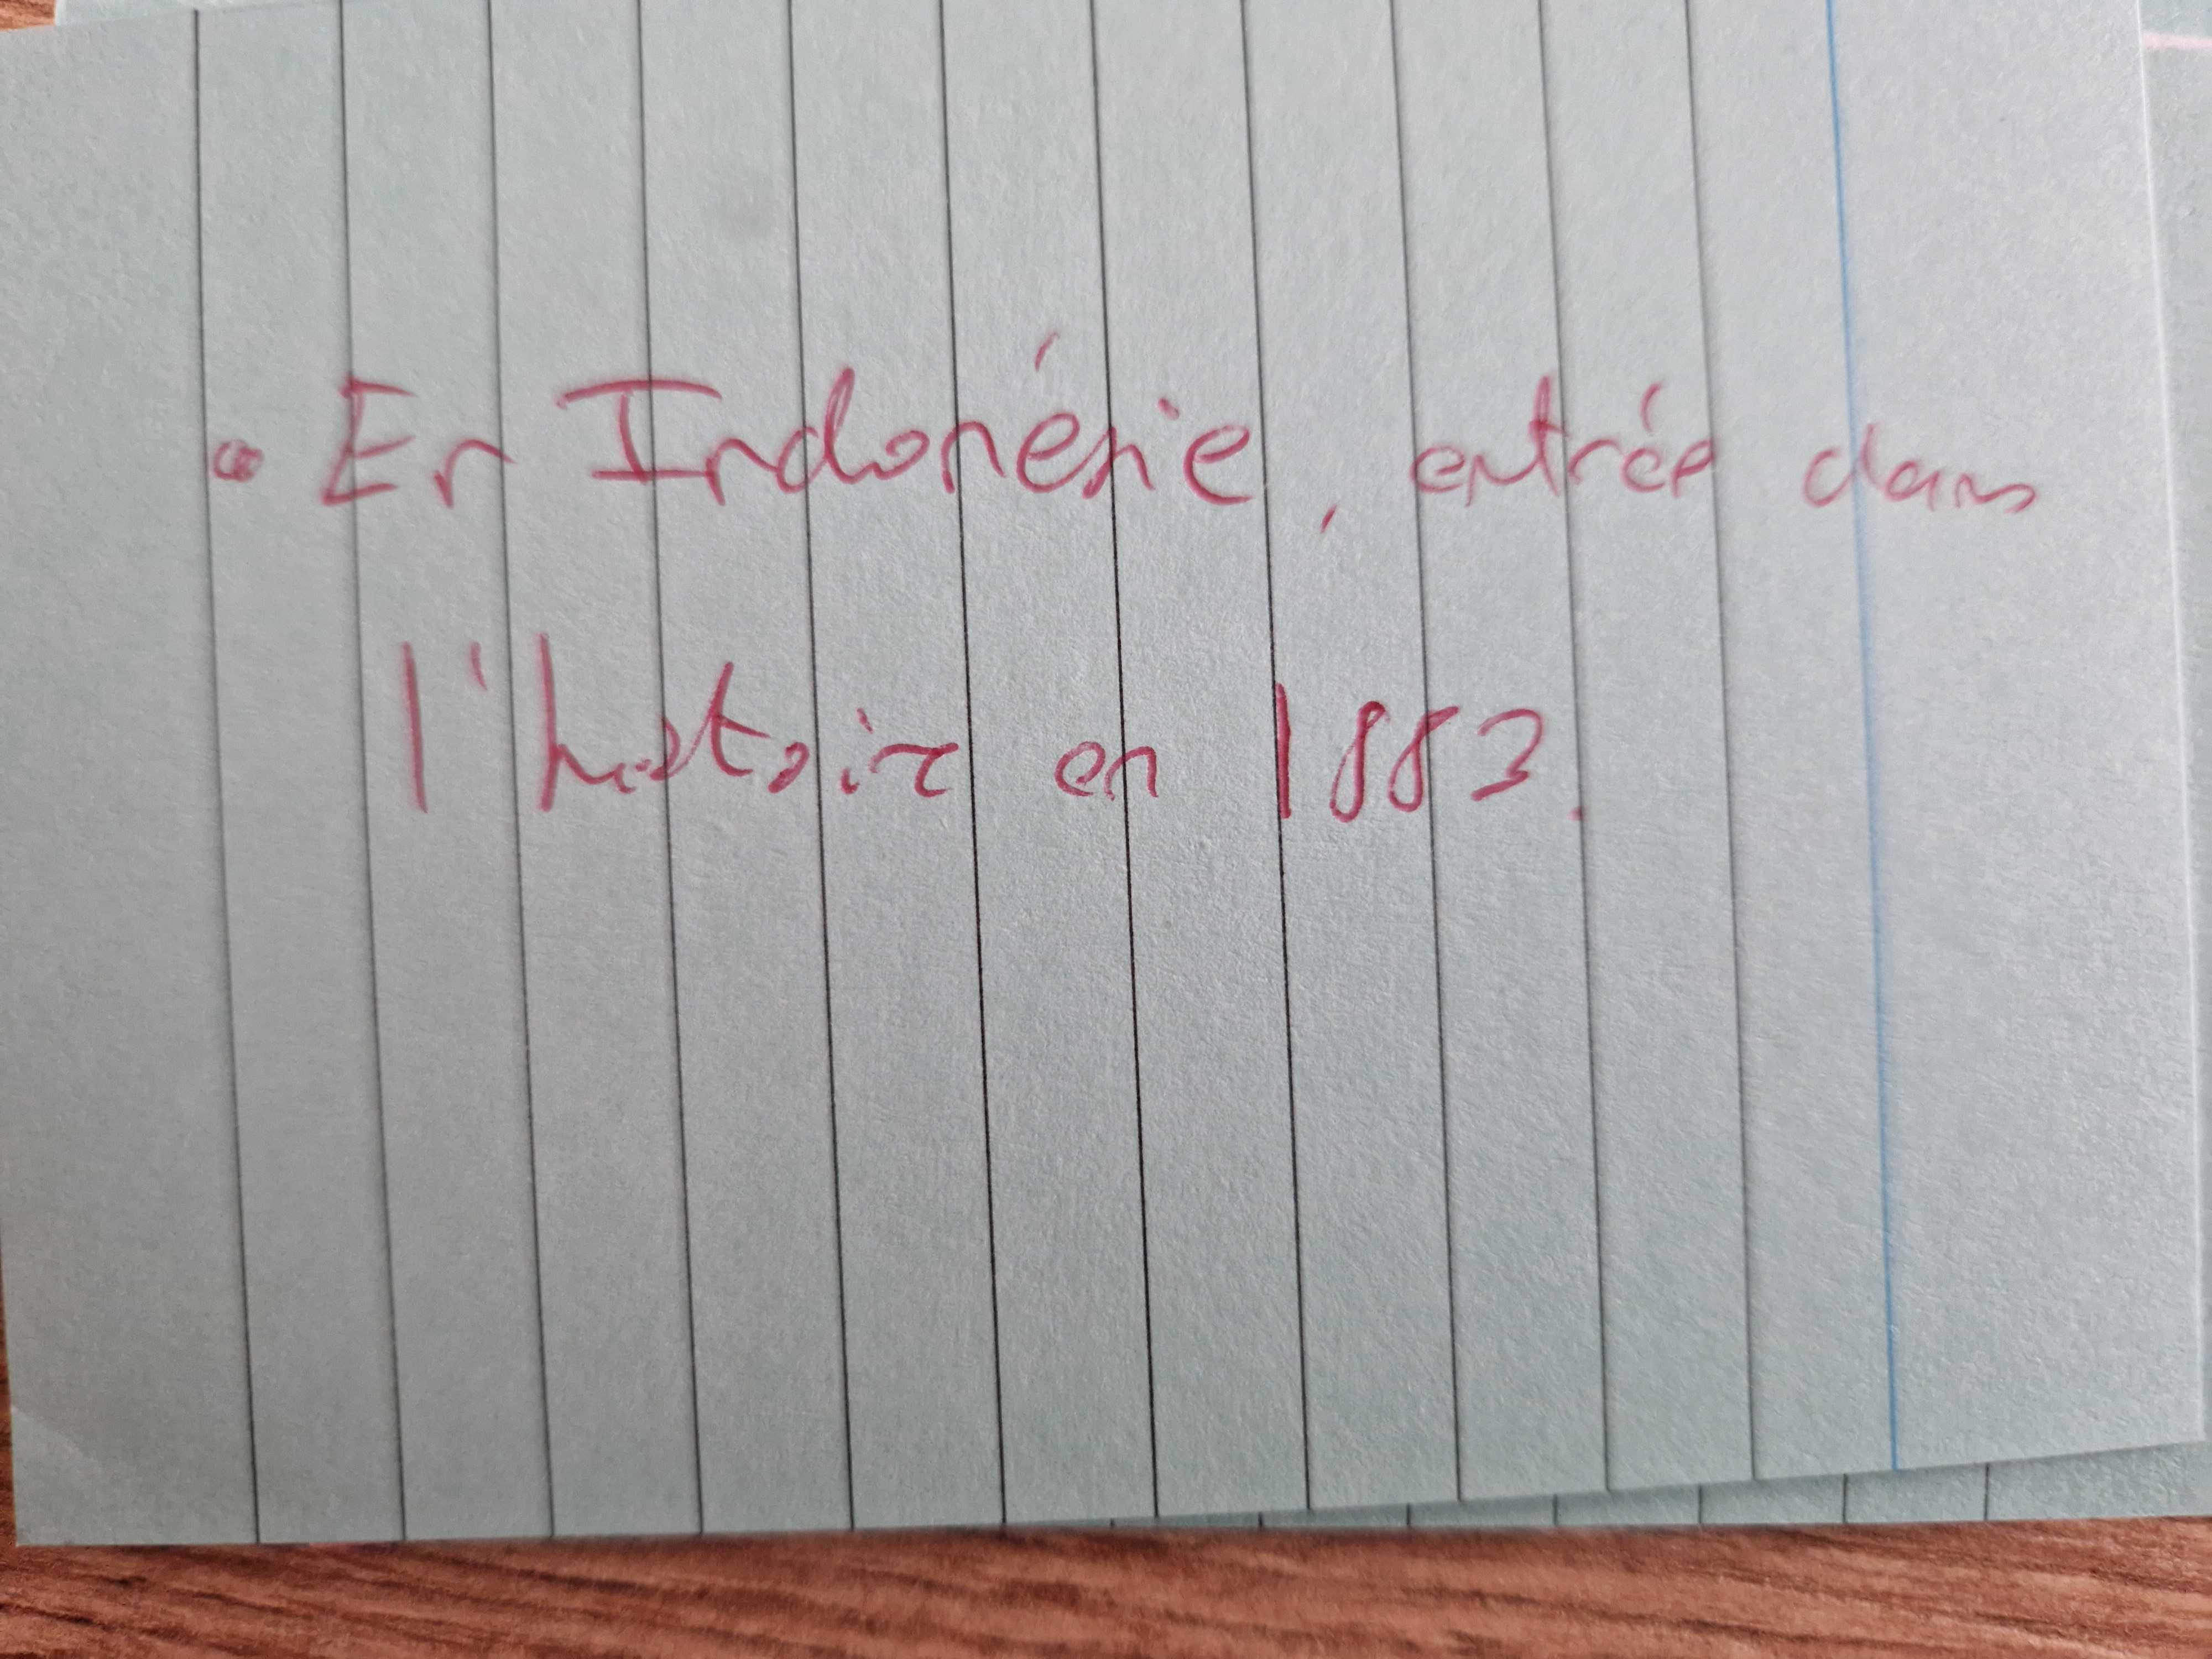 • En Indonésie, entrée dans
l'histoire en 1883.